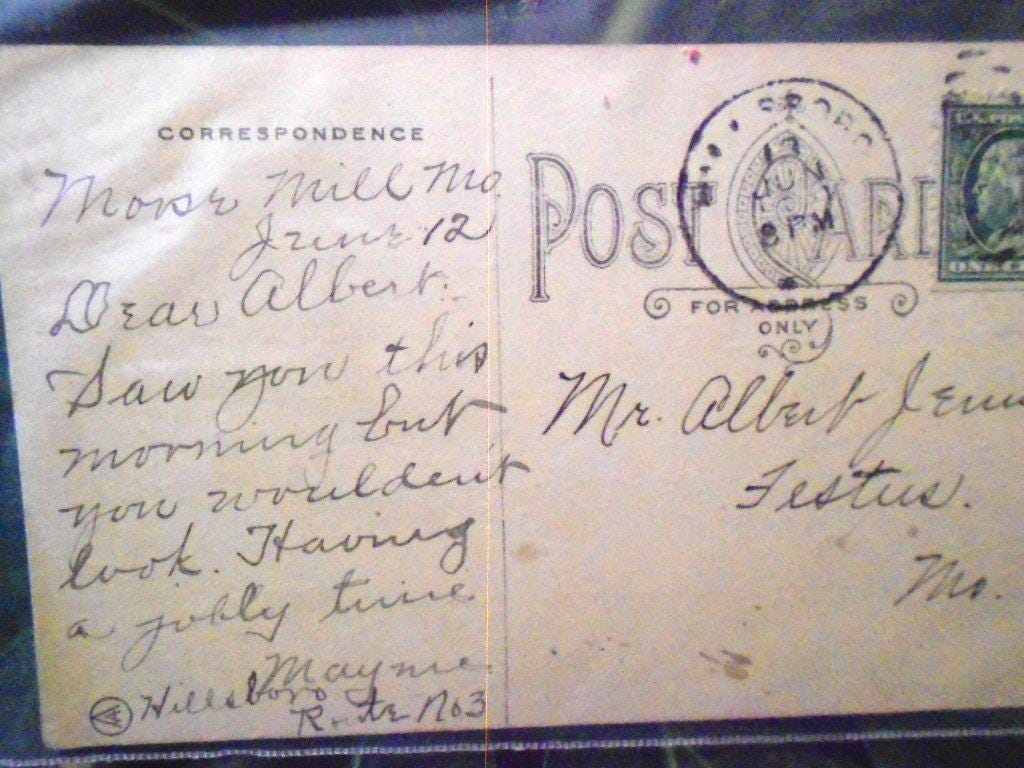 CORRESPONDENCE
Morse Mill Mo.
June 12
Dear Albert:
Saw you this
morning but
you wouldent
look. Having
a jolly time
Mayme
Hillsboro
Route No 3
POST CARD
FOR ADDRESS
ONLY
JUN
8 PM
U.S. POS
ONE CE
Mr. Albert
Festus.
Mo.